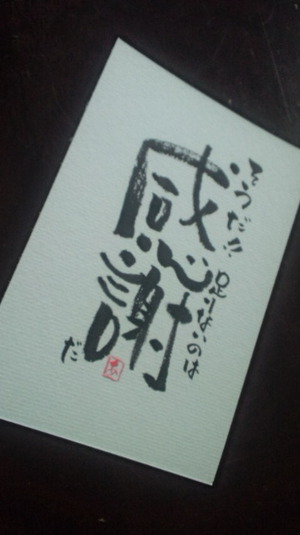 そうだ!!
足りないのは
感謝
だ